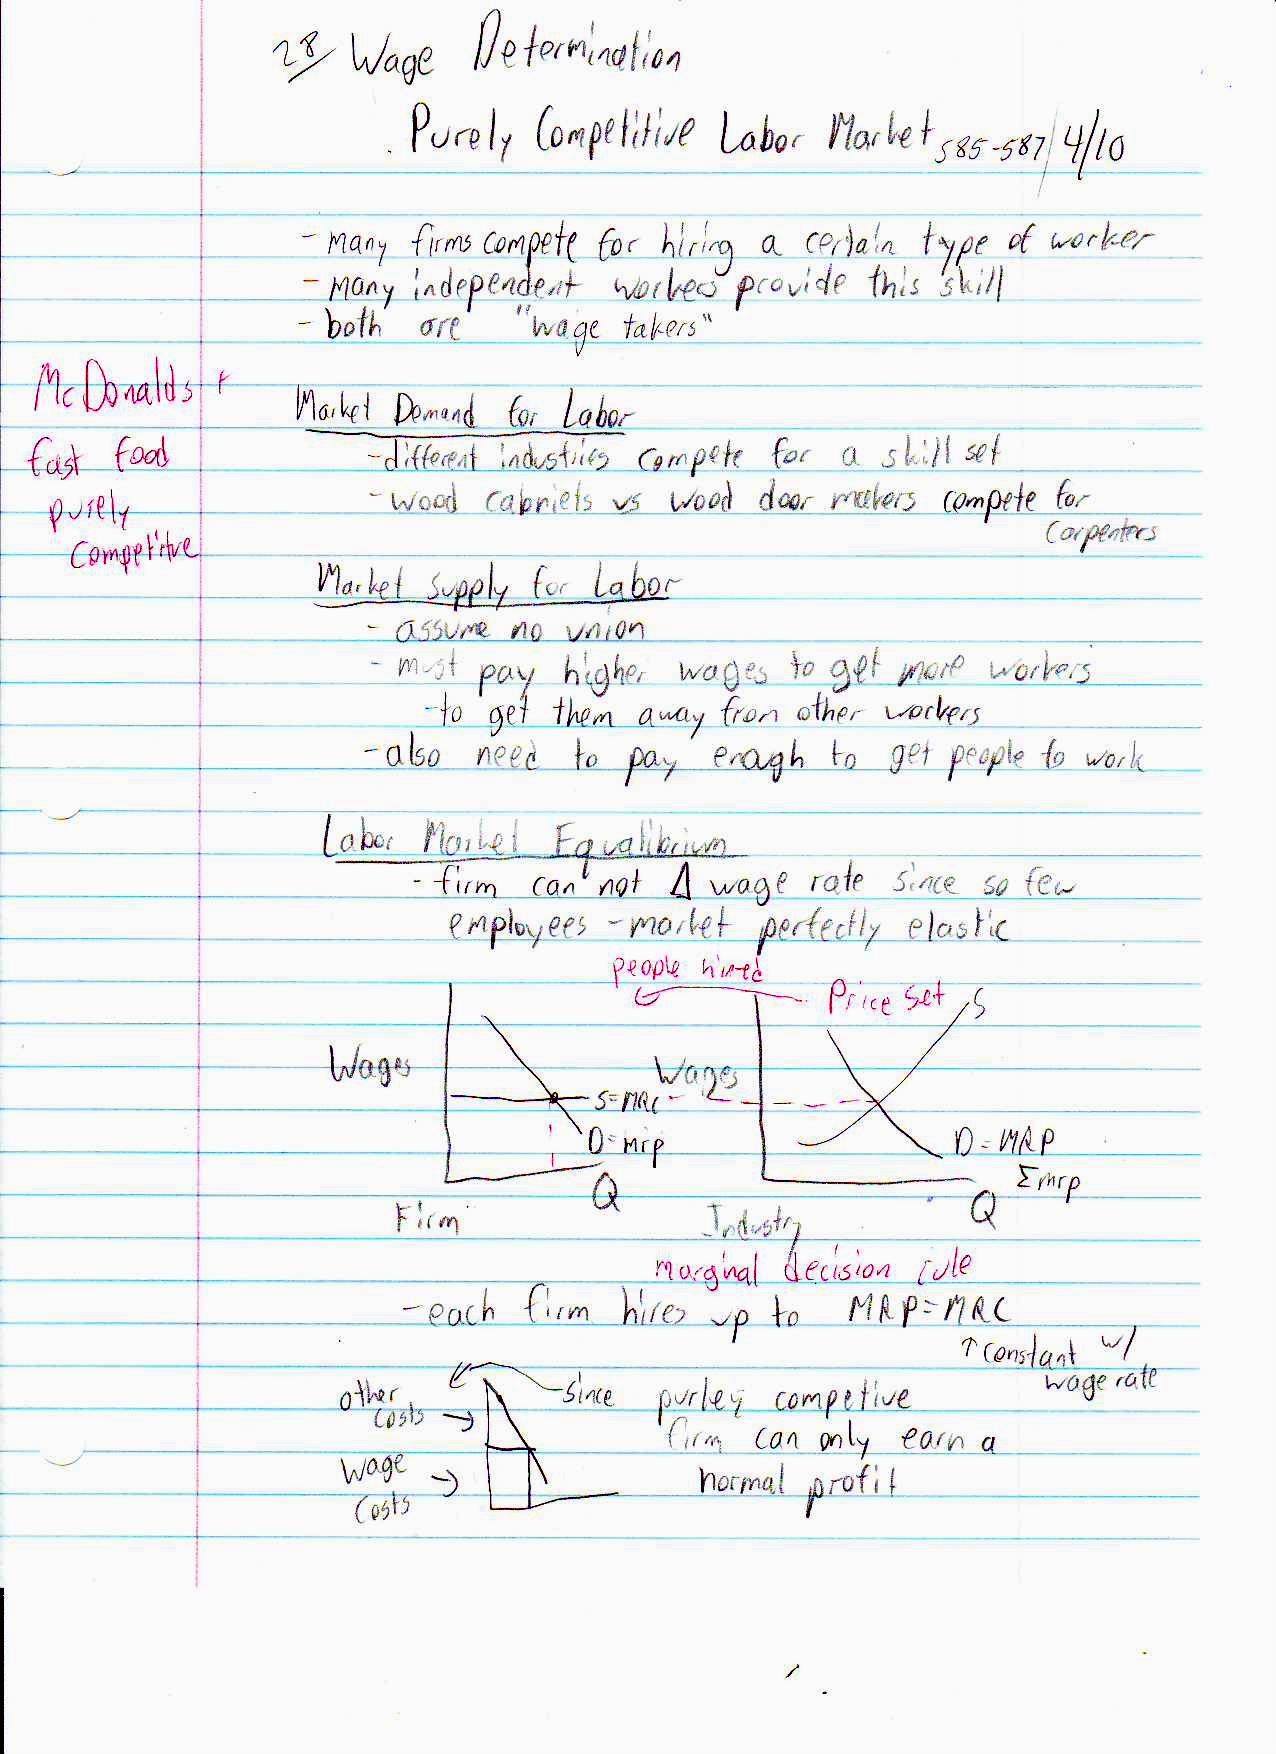 28/ Wage Determination
Purely Competitive Labor Market 585-587/ 4/10
- many firms compete for hiring a certain type of worker
- many independent workers provide this skill
- both are "wage takers"
McDonalds +
fast food
purely
competitive
Market Demand for Labor
- different industries compete for a skill set
- wood cabniets vs wood door makers compete for
carpenters
Market Supply for Labor
- assume no union
- must pay higher wages to get more workers
- to get them away from other workers
- also need to pay enough to get people to work
Labor Market Equalibrium
- firm can not Δ wage rate since so few
employees - market perfectly elastic
people hired
Price Set
S
Wages
Wages
S=MRC
D=mrp
D=MRP
Σmrp
Q
Q
Firm
Industry
marginal decision rule
- each firm hires up to MRP=MRC
↑ constant w/
wage rate
other
costs
since purley competive
firm can only earn a
normal profit
wage
costs